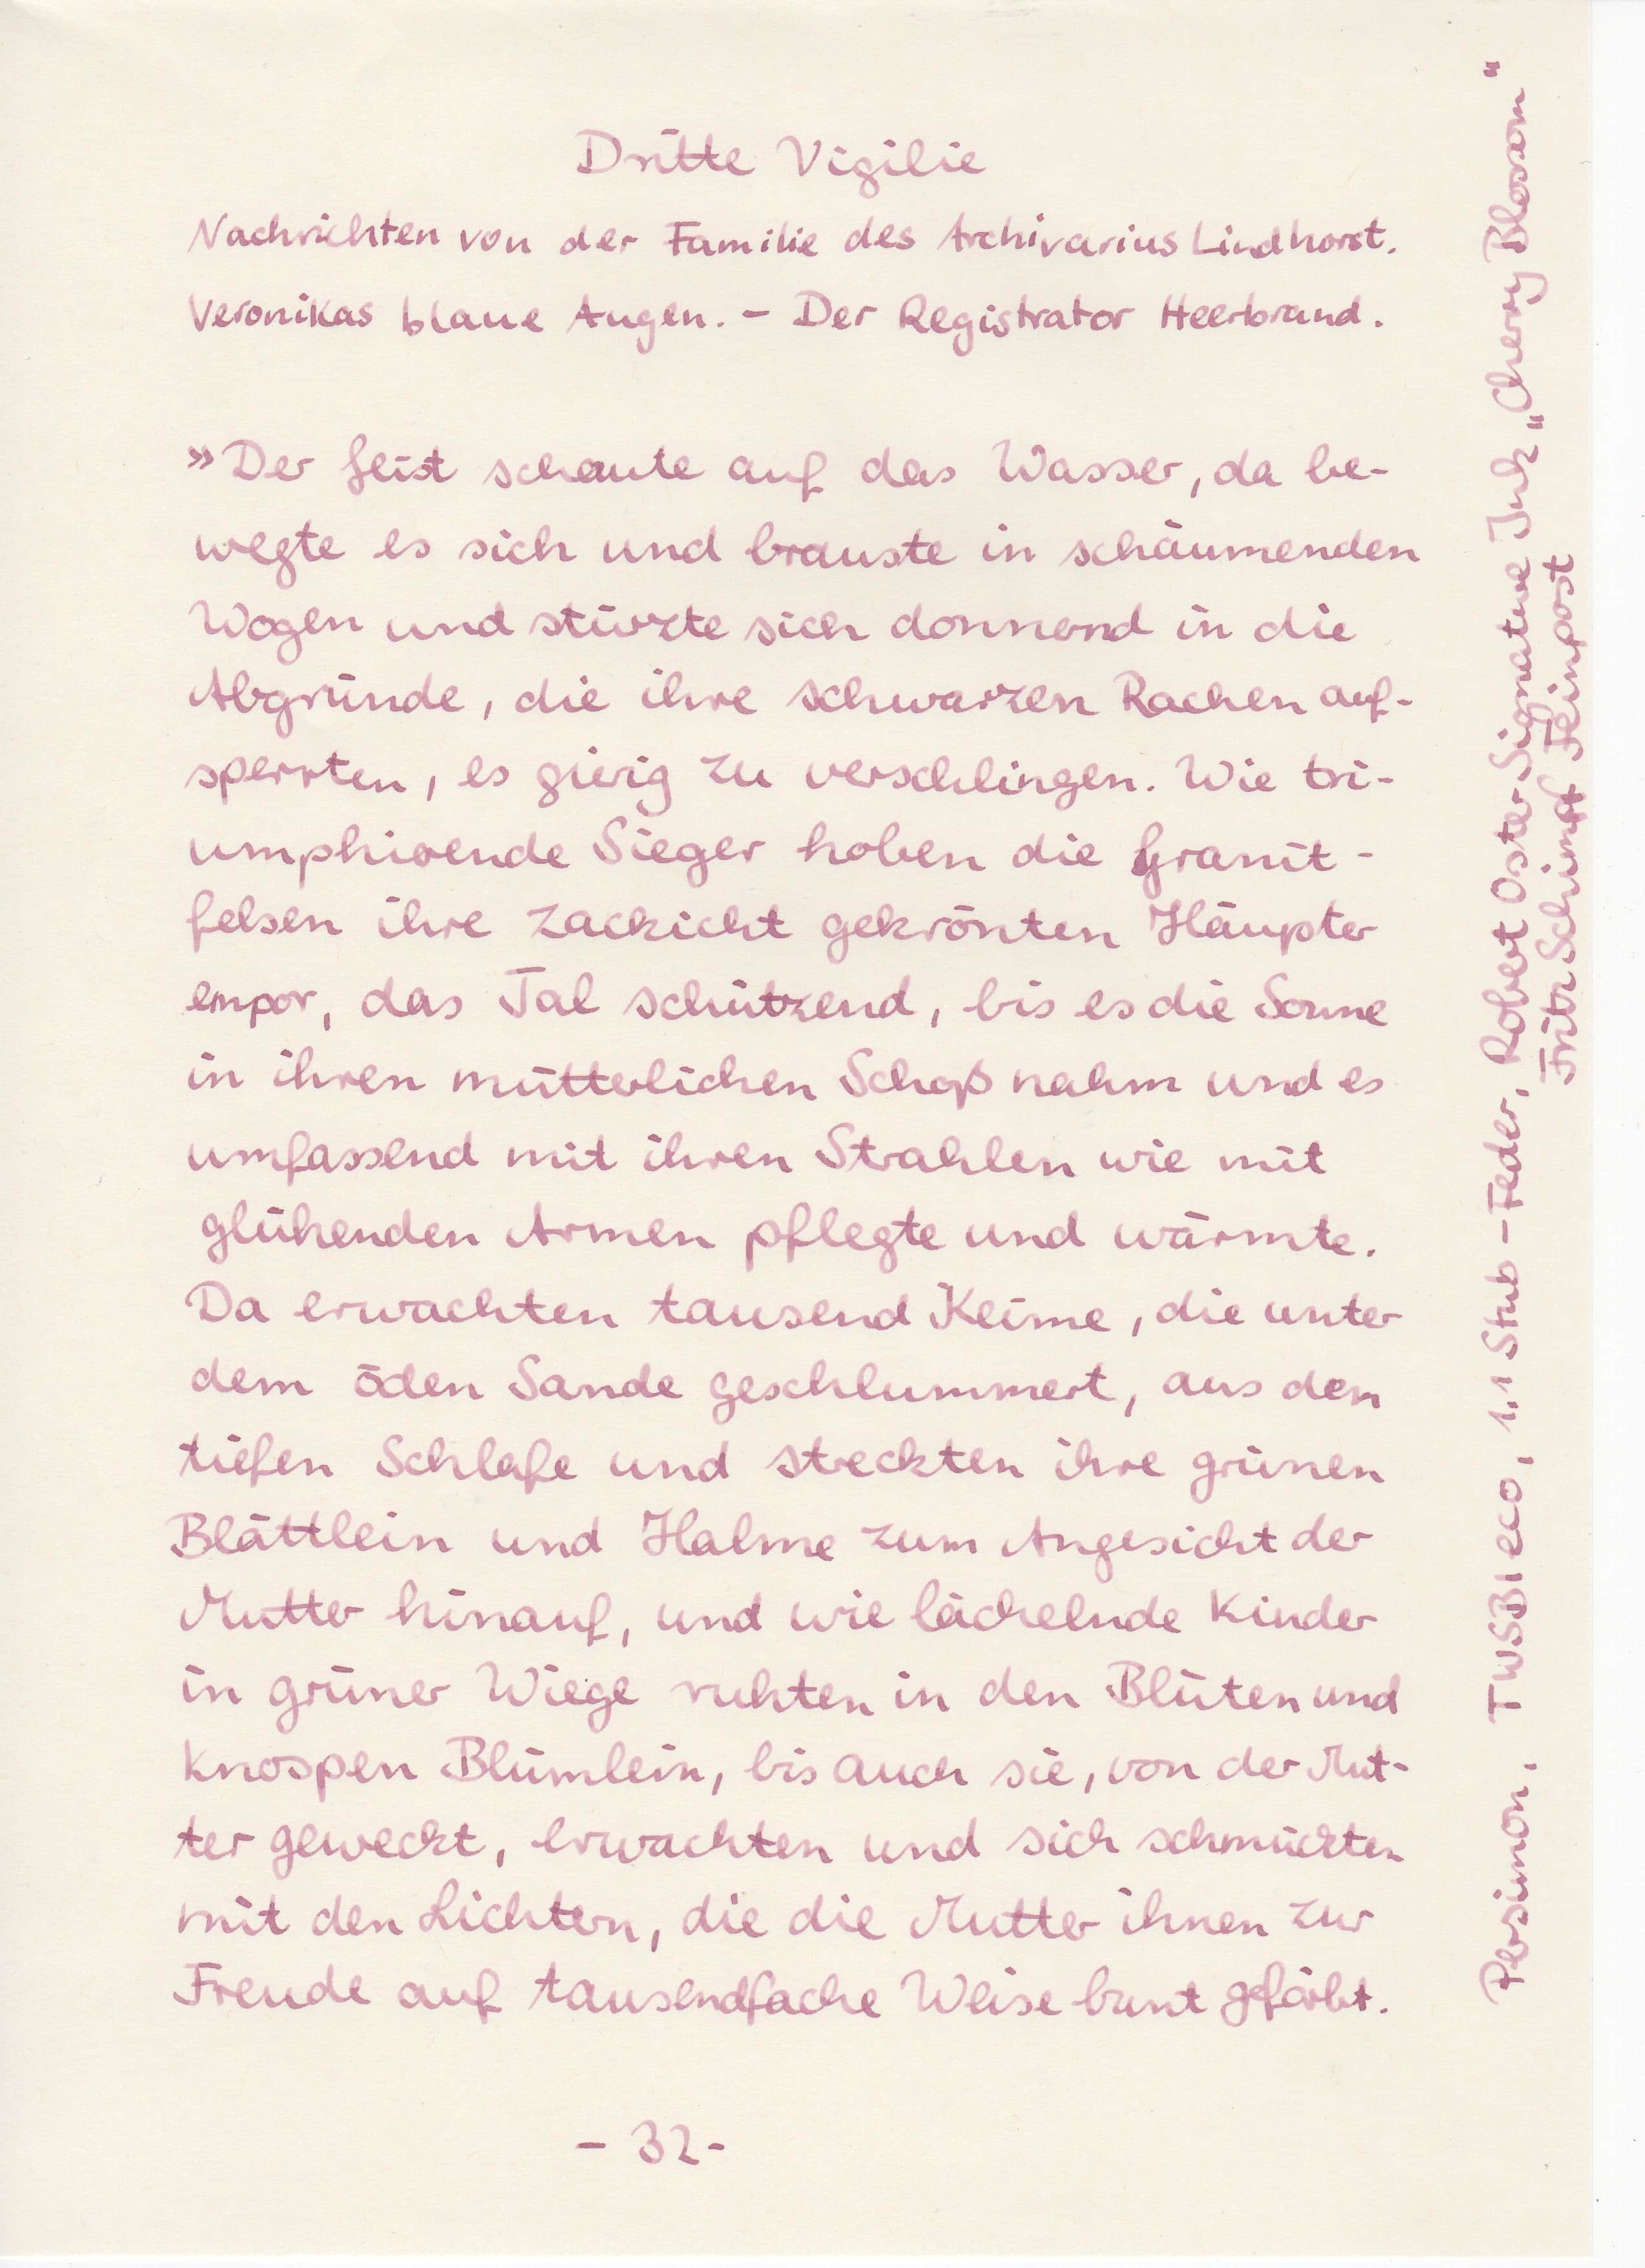 Dritte Vigilie
Nachrichten von der Familie des Archivarius Lindhorst.
Veronikas blaue Augen. – Der Registrator Heerbrand.
»Der Geist schaute auf das Wasser, da be-
wegte es sich und brauste in schäumenden
Wogen und stürzte sich donnernd in die
Abgründe, die ihre schwarzen Rachen auf-
sperrten, es gierig zu verschlingen. Wie tri-
umphierende Sieger hoben die Granit-
felsen ihre zackicht gekrönten Häupter
empor, das Tal schützend, bis es die Sonne
in ihren mütterlichen Schoß nahm und es
umfassend mit ihren Strahlen wie mit
glühenden Armen pflegte und wärmte.
Da erwachten tausend Keime, die unter
dem öden Sande geschlummert, aus dem
tiefen Schlafe und streckten ihre grünen
Blättlein und Halme zum Angesicht der
Mutter hinauf, und wie lächelnde Kinder
in grüner Wiege ruhten in den Blüten und
Knospen Blümlein, bis auch sie, von der Mut-
ter geweckt, erwachten und sich schmückten
mit den Lichtern, die die Mutter ihnen zur
Freude auf tausendfache Weise bunt gefärbt.
- 32 -
Persimon, TWSBI eco, 1.1 Stub-Feder, Robert Oster Signature Ink „Cherry Blossom"
Fritz Schimpf Feinpost